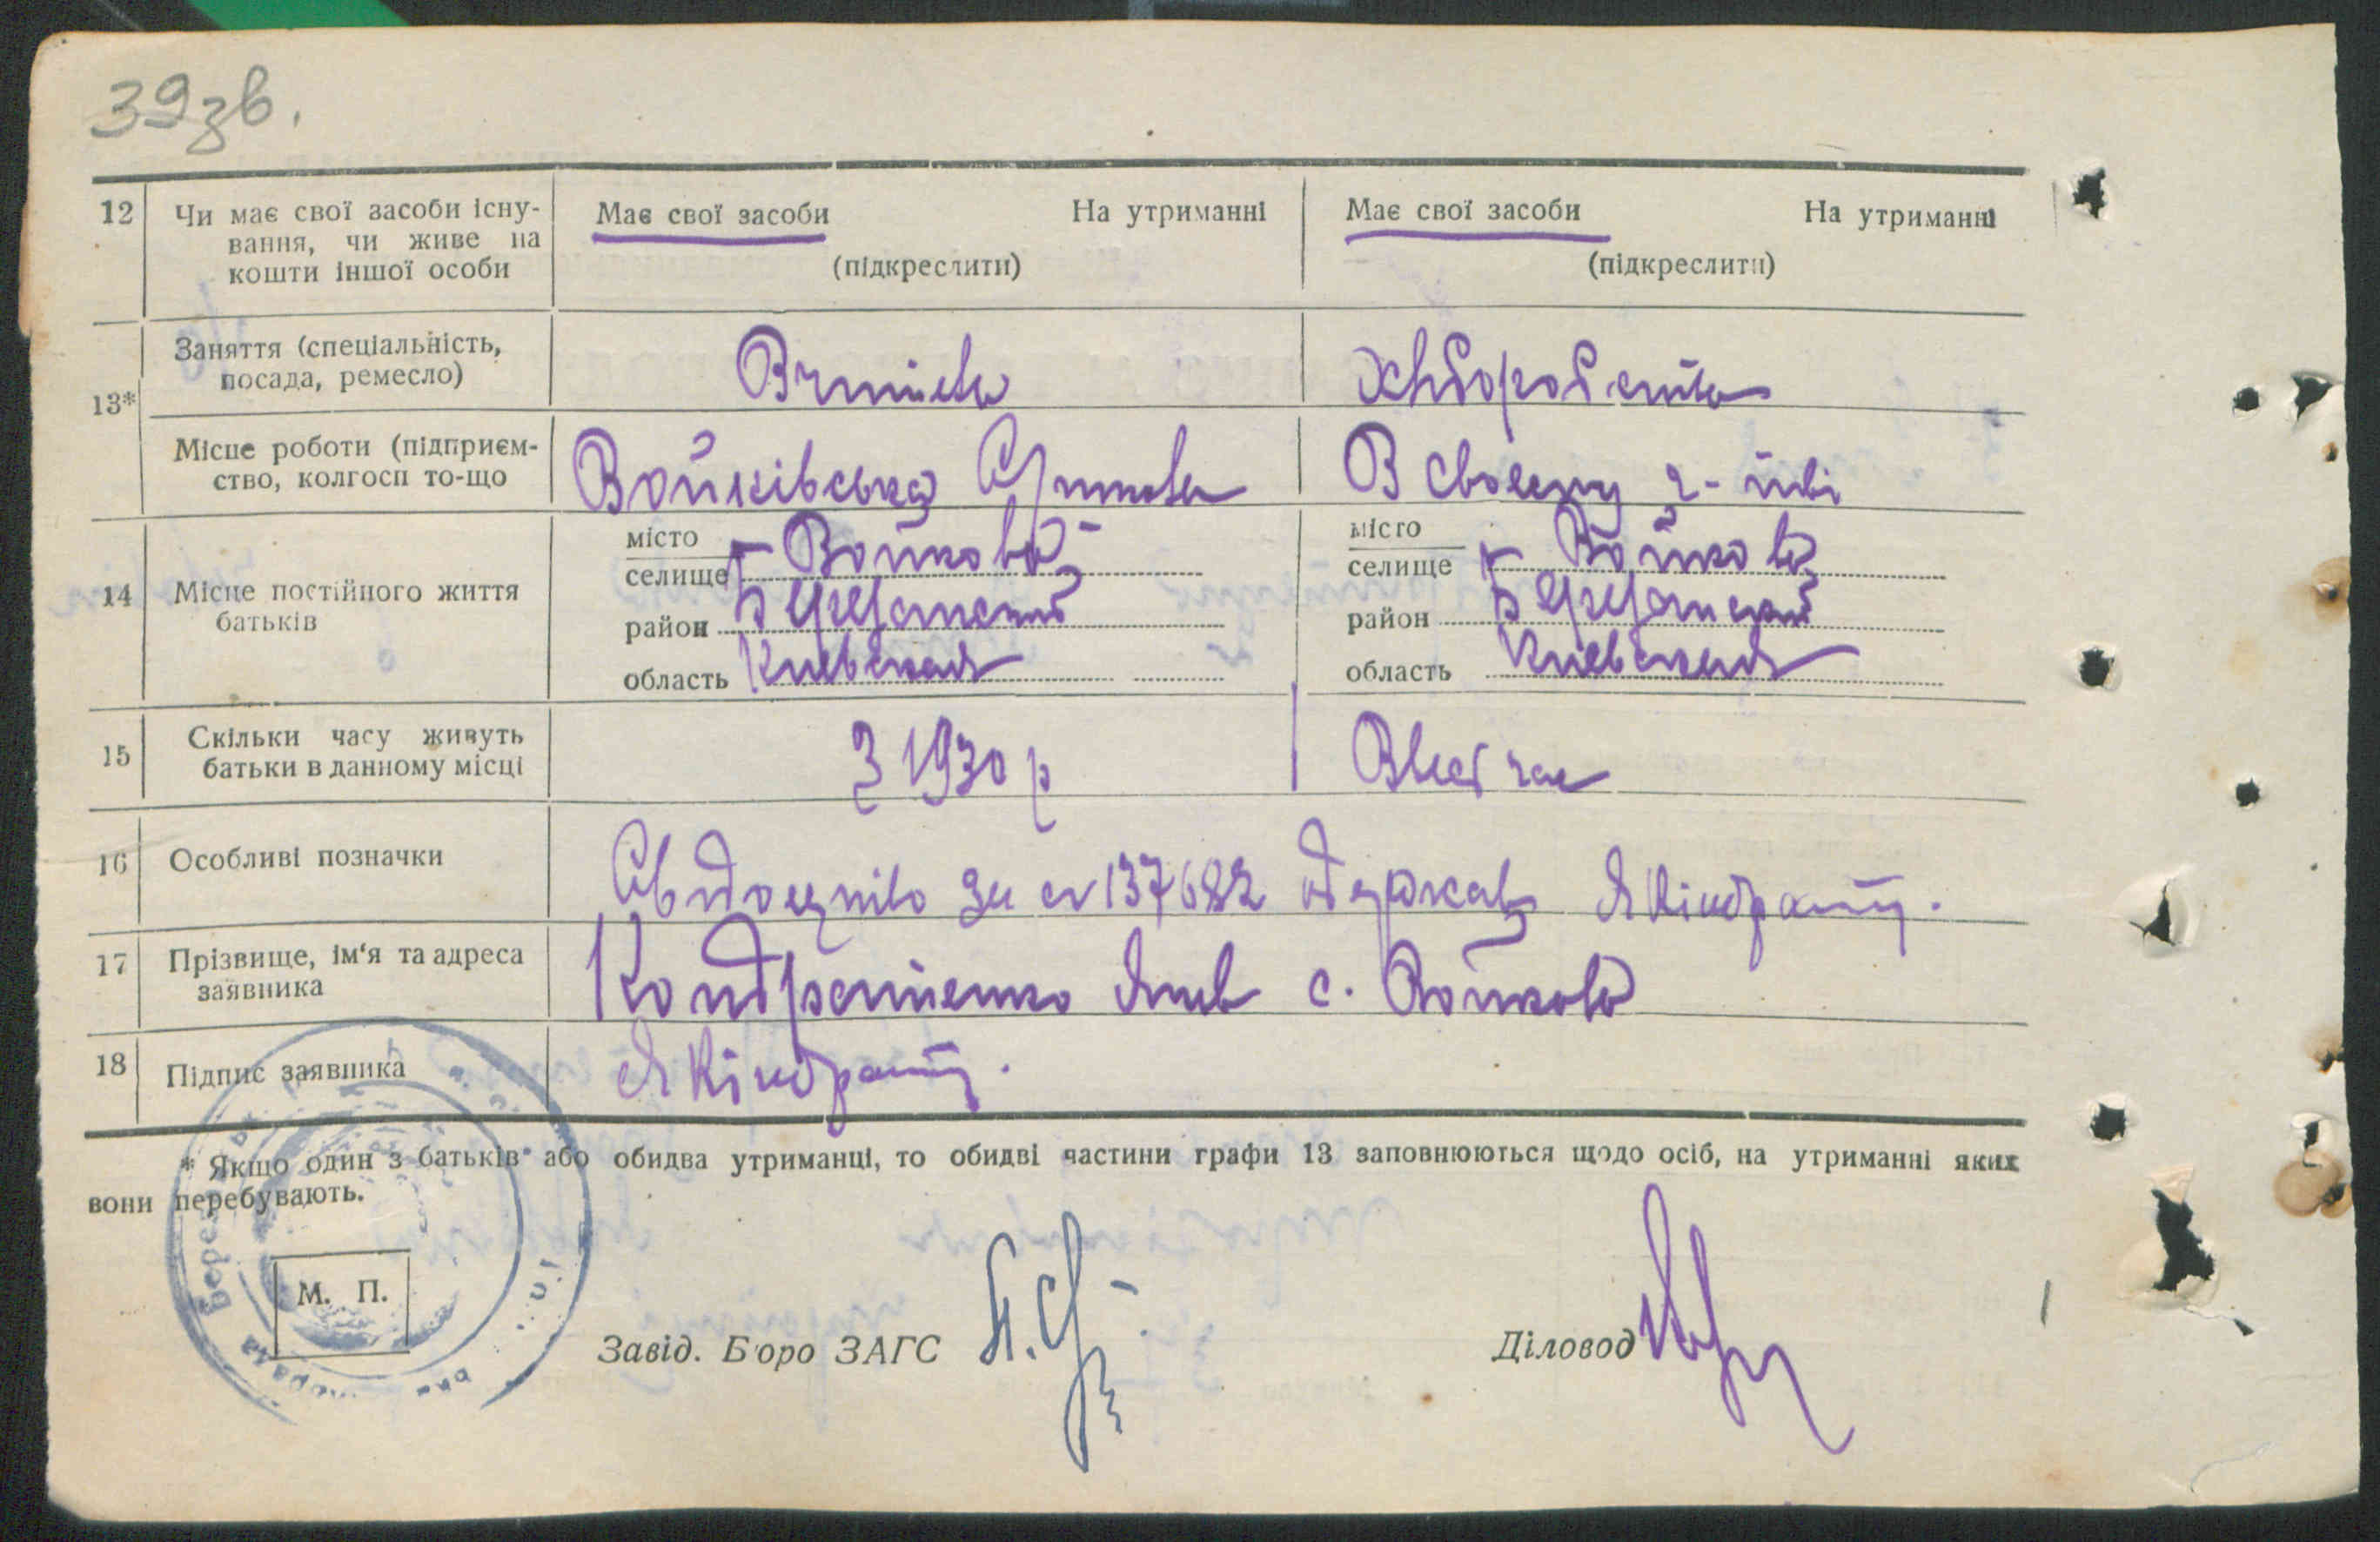 39зв.
12 Чи має свої засоби існу- Має свої засоби На утриманні Має свої засоби На утриманні
вання, чи живе на
кошти іншої особи (підкреслити) (підкреслити)
13* Заняття (спеціальність, Вчитель Хліборобство
посада, ремесло)
Місце роботи (підприєм- Войківська В своему г-тві
ство, колгосп то-що
14 Місце постійного життя батьків
місто
селище Войкова
район Березанский
область Киевская
місто
селище Войкова
район Березанский
область Киевская
15 Скільки часу живуть З 1930 р Ввесь час
батьки в данному місці
16 Особливі позначки за № 137682 одержав Я Кіндрат.
17 Прізвище, ім'я та адреса Кондратенко Яков с. Войкова
заявника
18 Підпис заявника Я Кіндрат.
* Якщо один з батьків або обидва утриманці, то обидві частини графи 13 заповнюються щодо осіб, на утриманні яких
вони перебувають.
М. П.
Завід. Бюро ЗАГС Діловод